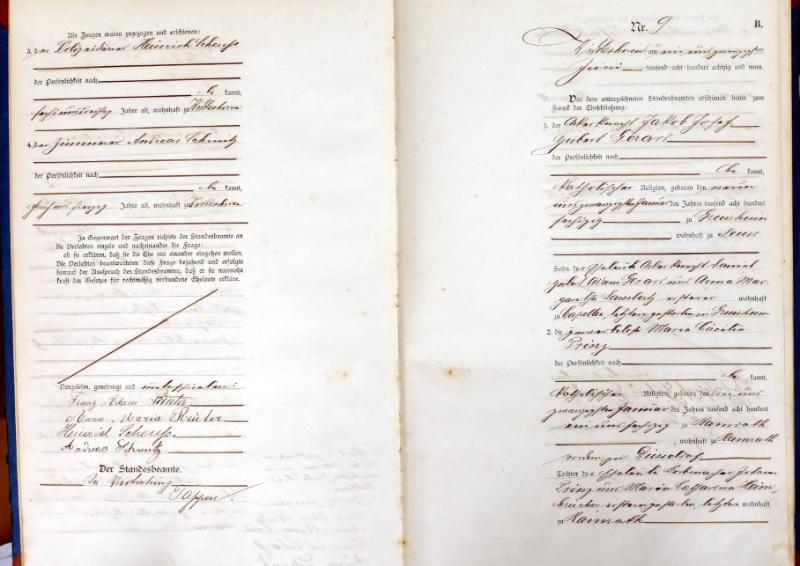 Als Zeugen waren zugezogen und erschienen:
3. der Polizeidiener Heinrich Scheuss
der Persönlichkeit nach
be kannt,
Jahre alt, wohnhaft zu
4. der Zimmerer Andreas Schmitz
der Persönlichkeit nach
be kannt,
Jahre alt, wohnhaft zu
In Gegenwart der Zeugen richtete der Standesbeamte an
die Verlobten einzeln und nacheinander die Frage:
ob sie erklären, daß sie die Ehe mit einander eingehen wollen.
Die Verlobten beantworteten diese Frage bejahend und erfolgte
hierauf der Ausspruch des Standesbeamten, daß er sie nunmehr
kraft des Gesetzes für rechtmäßig verbundene Eheleute erkläre.
Vorgelesen, genehmigt und unterschrieben:
Franz Adam
Anna Maria
Heinrich Scheuss
Andreas Schmitz
Der Standesbeamte.
In Vertretung
Tappen.
Nr. 9
B.
am ein und zwanzigsten
Juni tausend acht hundert achtzig und neun.
Vor dem unterzeichneten Standesbeamten erschienen heute zum
Zweck der Eheschließung:
1. der Ackerknecht Jakob Josef
Hubert Gerars
der Persönlichkeit nach
be kannt,
katholischer Religion, geboren den neun
und zwanzigsten Januar des Jahres tausend acht hundert
sechzig zu
, wohnhaft zu Neuss
Sohn der Eheleute Ackerknecht
Hubert Adam Gerars und Anna Mar-
garetha ersterer wohnhaft
zu Capellen, letztere gestorben in
2. die gewerblose Maria Cäcilia
Prinz
der Persönlichkeit nach
be kannt,
katholischer Religion, geboren den ein und
zwanzigsten Januar des Jahres tausend acht hundert
ein und sechzig zu Kanrath
, wohnhaft zu Kanrath
vordem zu Düsseldorf
Tochter der Eheleute Korbmacher Johann
Prinz und Maria Catharina Heim-
, ersterer gestorben, letztere wohnhaft
zu Kanrath